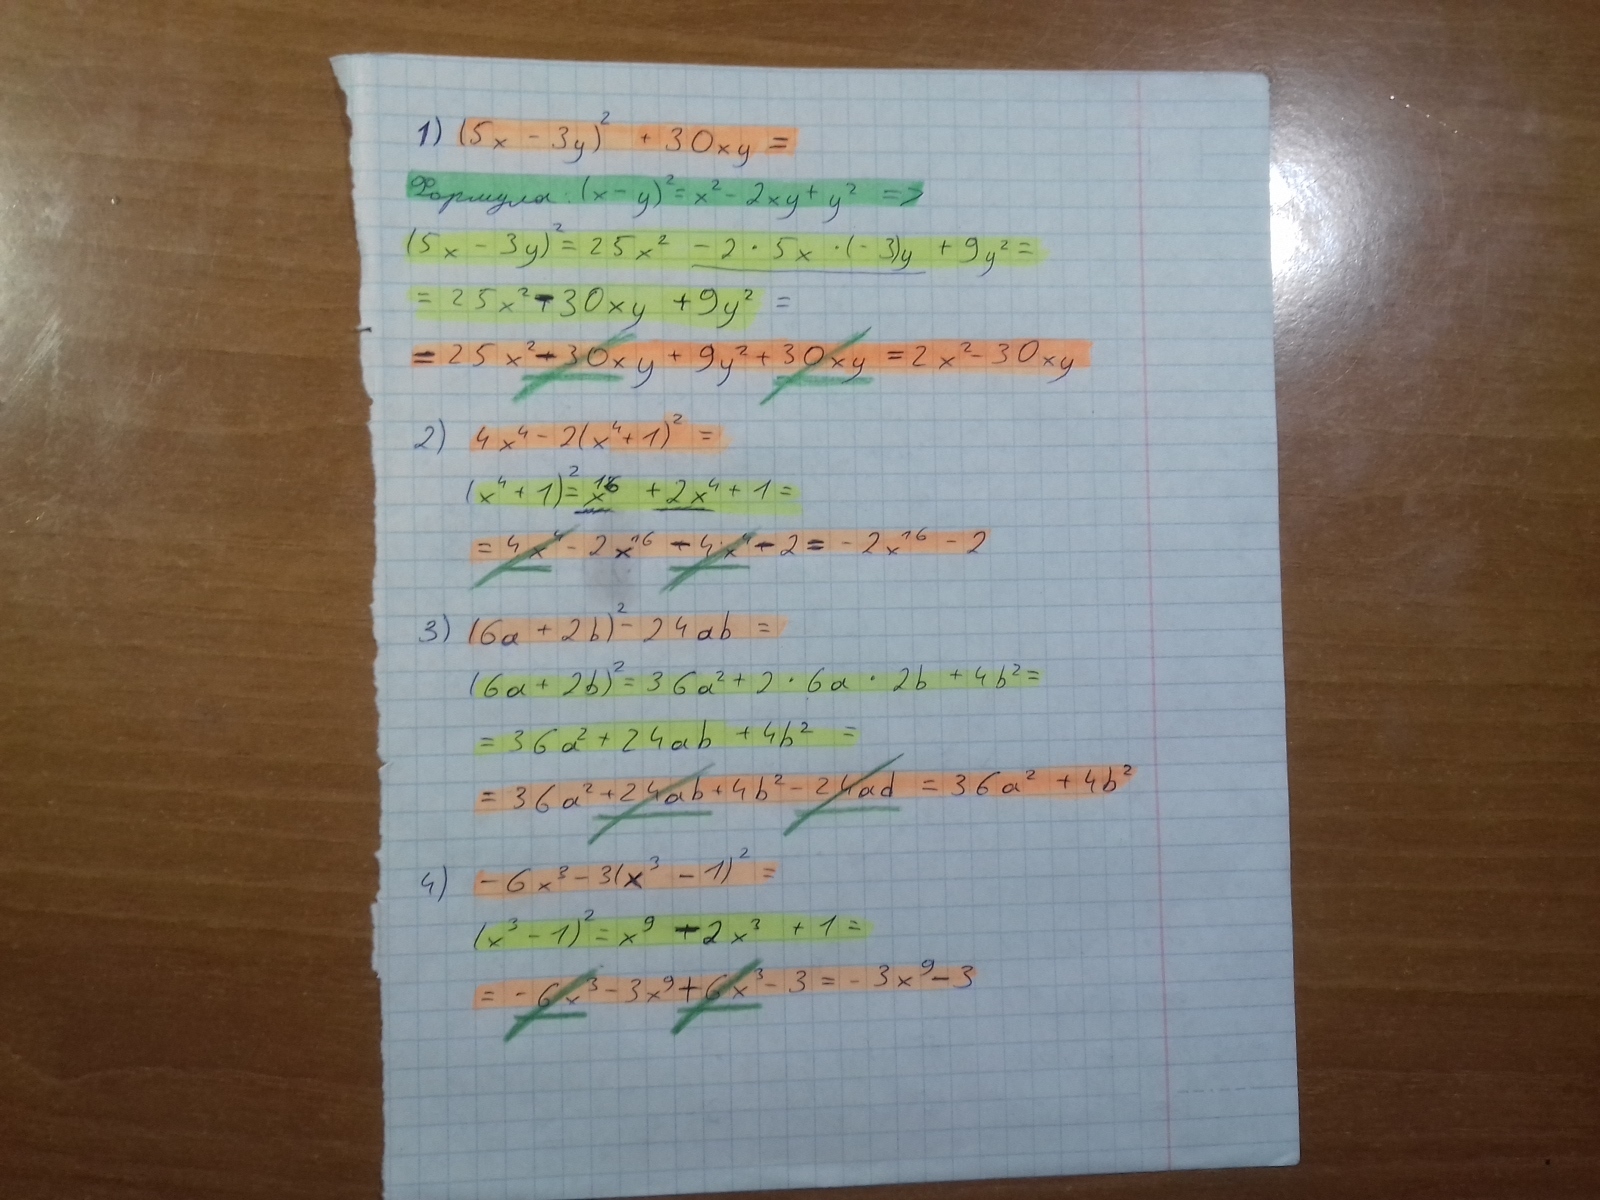 1) (5x - 3y)² + 30xy =
Формула: (x - y)² = x² - 2xy + y² =>
(5x - 3y)² = 25x² - 2 · 5x · (-3)y + 9y² =
= 25x² - 30xy + 9y² =
= 25x² - 30xy + 9y² + 30xy = 2x² - 30xy
2) 4x⁴ - 2(x⁴ + 1)² =
(x⁴ + 1)² = x¹⁶ + 2x⁴ + 1 =
= 4x⁴ - 2x¹⁶ - 4x⁴ - 2 = - 2x¹⁶ - 2
3) (6a + 2b)² - 24ab =
(6a + 2b)² = 36a² + 2 · 6a · 2b + 4b² =
= 36a² + 24ab + 4b² =
= 36a² + 24ab + 4b² - 24ad = 36a² + 4b²
4) - 6x³ - 3(x³ - 1)² =
(x³ - 1)² = x⁹ - 2x³ + 1 =
= - 6x³ - 3x⁹ + 6x³ - 3 = - 3x⁹ - 3